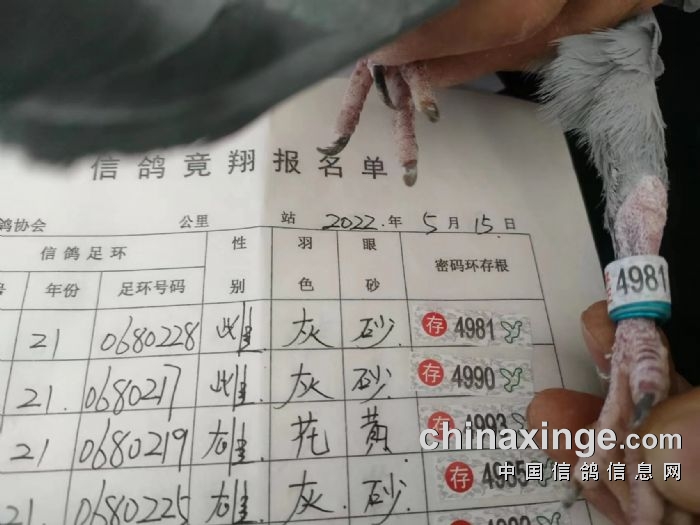 信鸽竞翔报名单
鸽协会 公里 站 2022.年 5月 15.日
信鸽足环 性别 羽色 眼砂 密码环存根
号 年份 足环号码
21 0680228 雌 灰 砂 存 4981
4981
21. 0680217 雌 灰 砂. 存 4990
21 0680219 雄 花 黄 存 4993
21. 0680225 雄 灰 砂. 存
chinaxinge.com
中国信鸽信息网